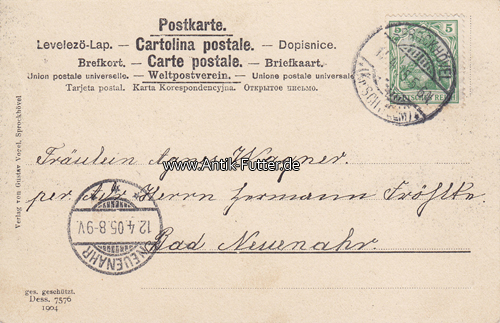 Postkarte.
Levelezö-Lap. — Cartolina postale. — Dopisnice.
Brefkort. — Carte postale. — Briefkaart.
Union postale universelle. — Weltpostverein. — Unione postale universale
Tarjeta postal. Karta Korespondencyjna. Открытое письмо.
5 5
SPROCKHÖVEL
(WESTF.)
Fräulein Agnes Wagner.
www.Antik-Futter.de
per Adr. Herrn Hermann Fröhlke.
Bad Neuenahr.
NEUENAHR
12.4.05.8-9V.
Verlag von Gustav Vogel, Sprockhövel
ges. geschützt.
Dess. 7576
1904